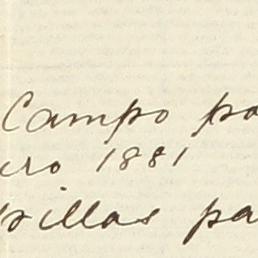 Campo pa
ero 1881
pillas pa